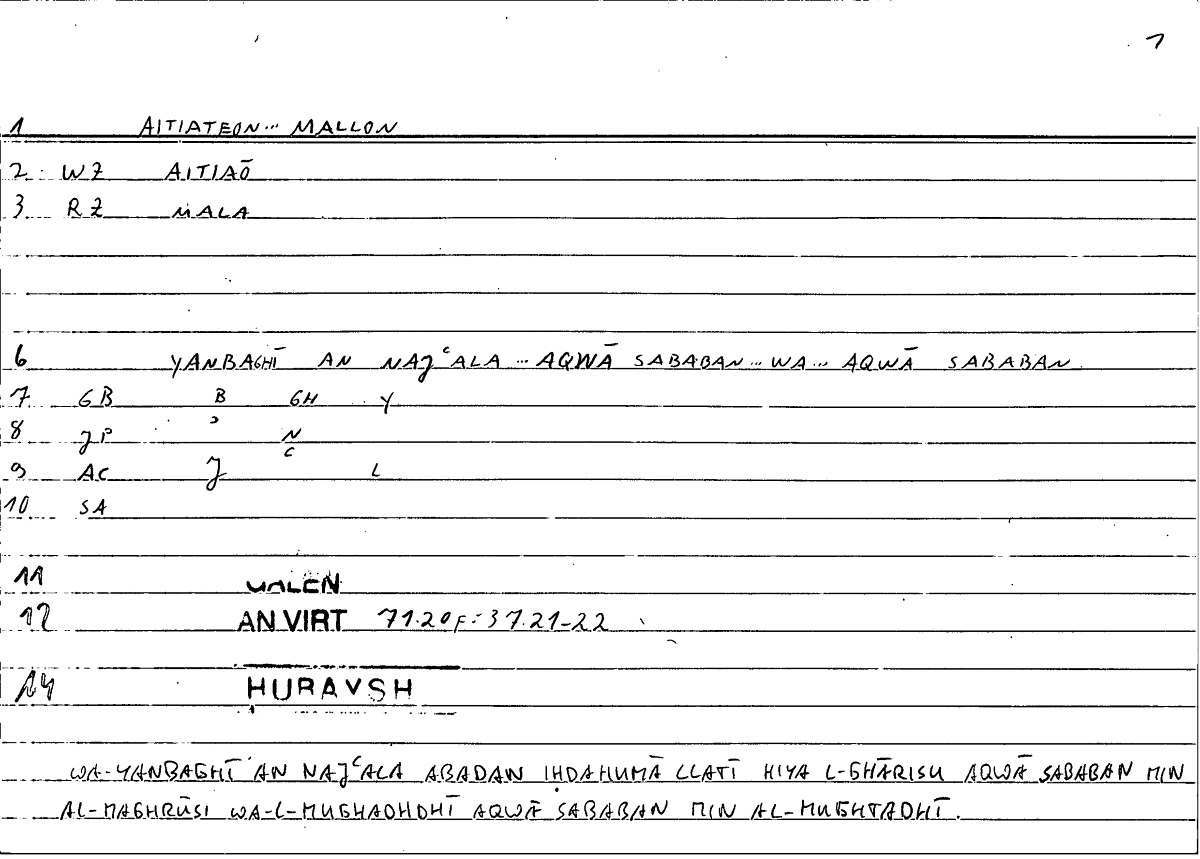 1
1 AITIATEON... MALLON
2 WZ AITIAŌ
3 RZ MALA
6 YANBAGHĪ AN NAJʿALA ... AQWĀ SABABAN ... WA ... AQWĀ SABABAN
7 GB B GH Y
8 JP ʾ N
9 AC J ʿ L
10 SA
11 GALEN
12 AN VIRT 71.20F = 37.21-22
14 HURAYSH
WA-YANBAGHĪ AN NAJʿALA ABADAN IḤDAHUMĀ LLATĪ HIYA L-GHĀRISU AQWĀ SABABAN MIN
AL-MAGHRŪSI WA-L-MUGHADHDHĪ AQWĀ SABABAN MIN AL-MUGHTADHĪ.